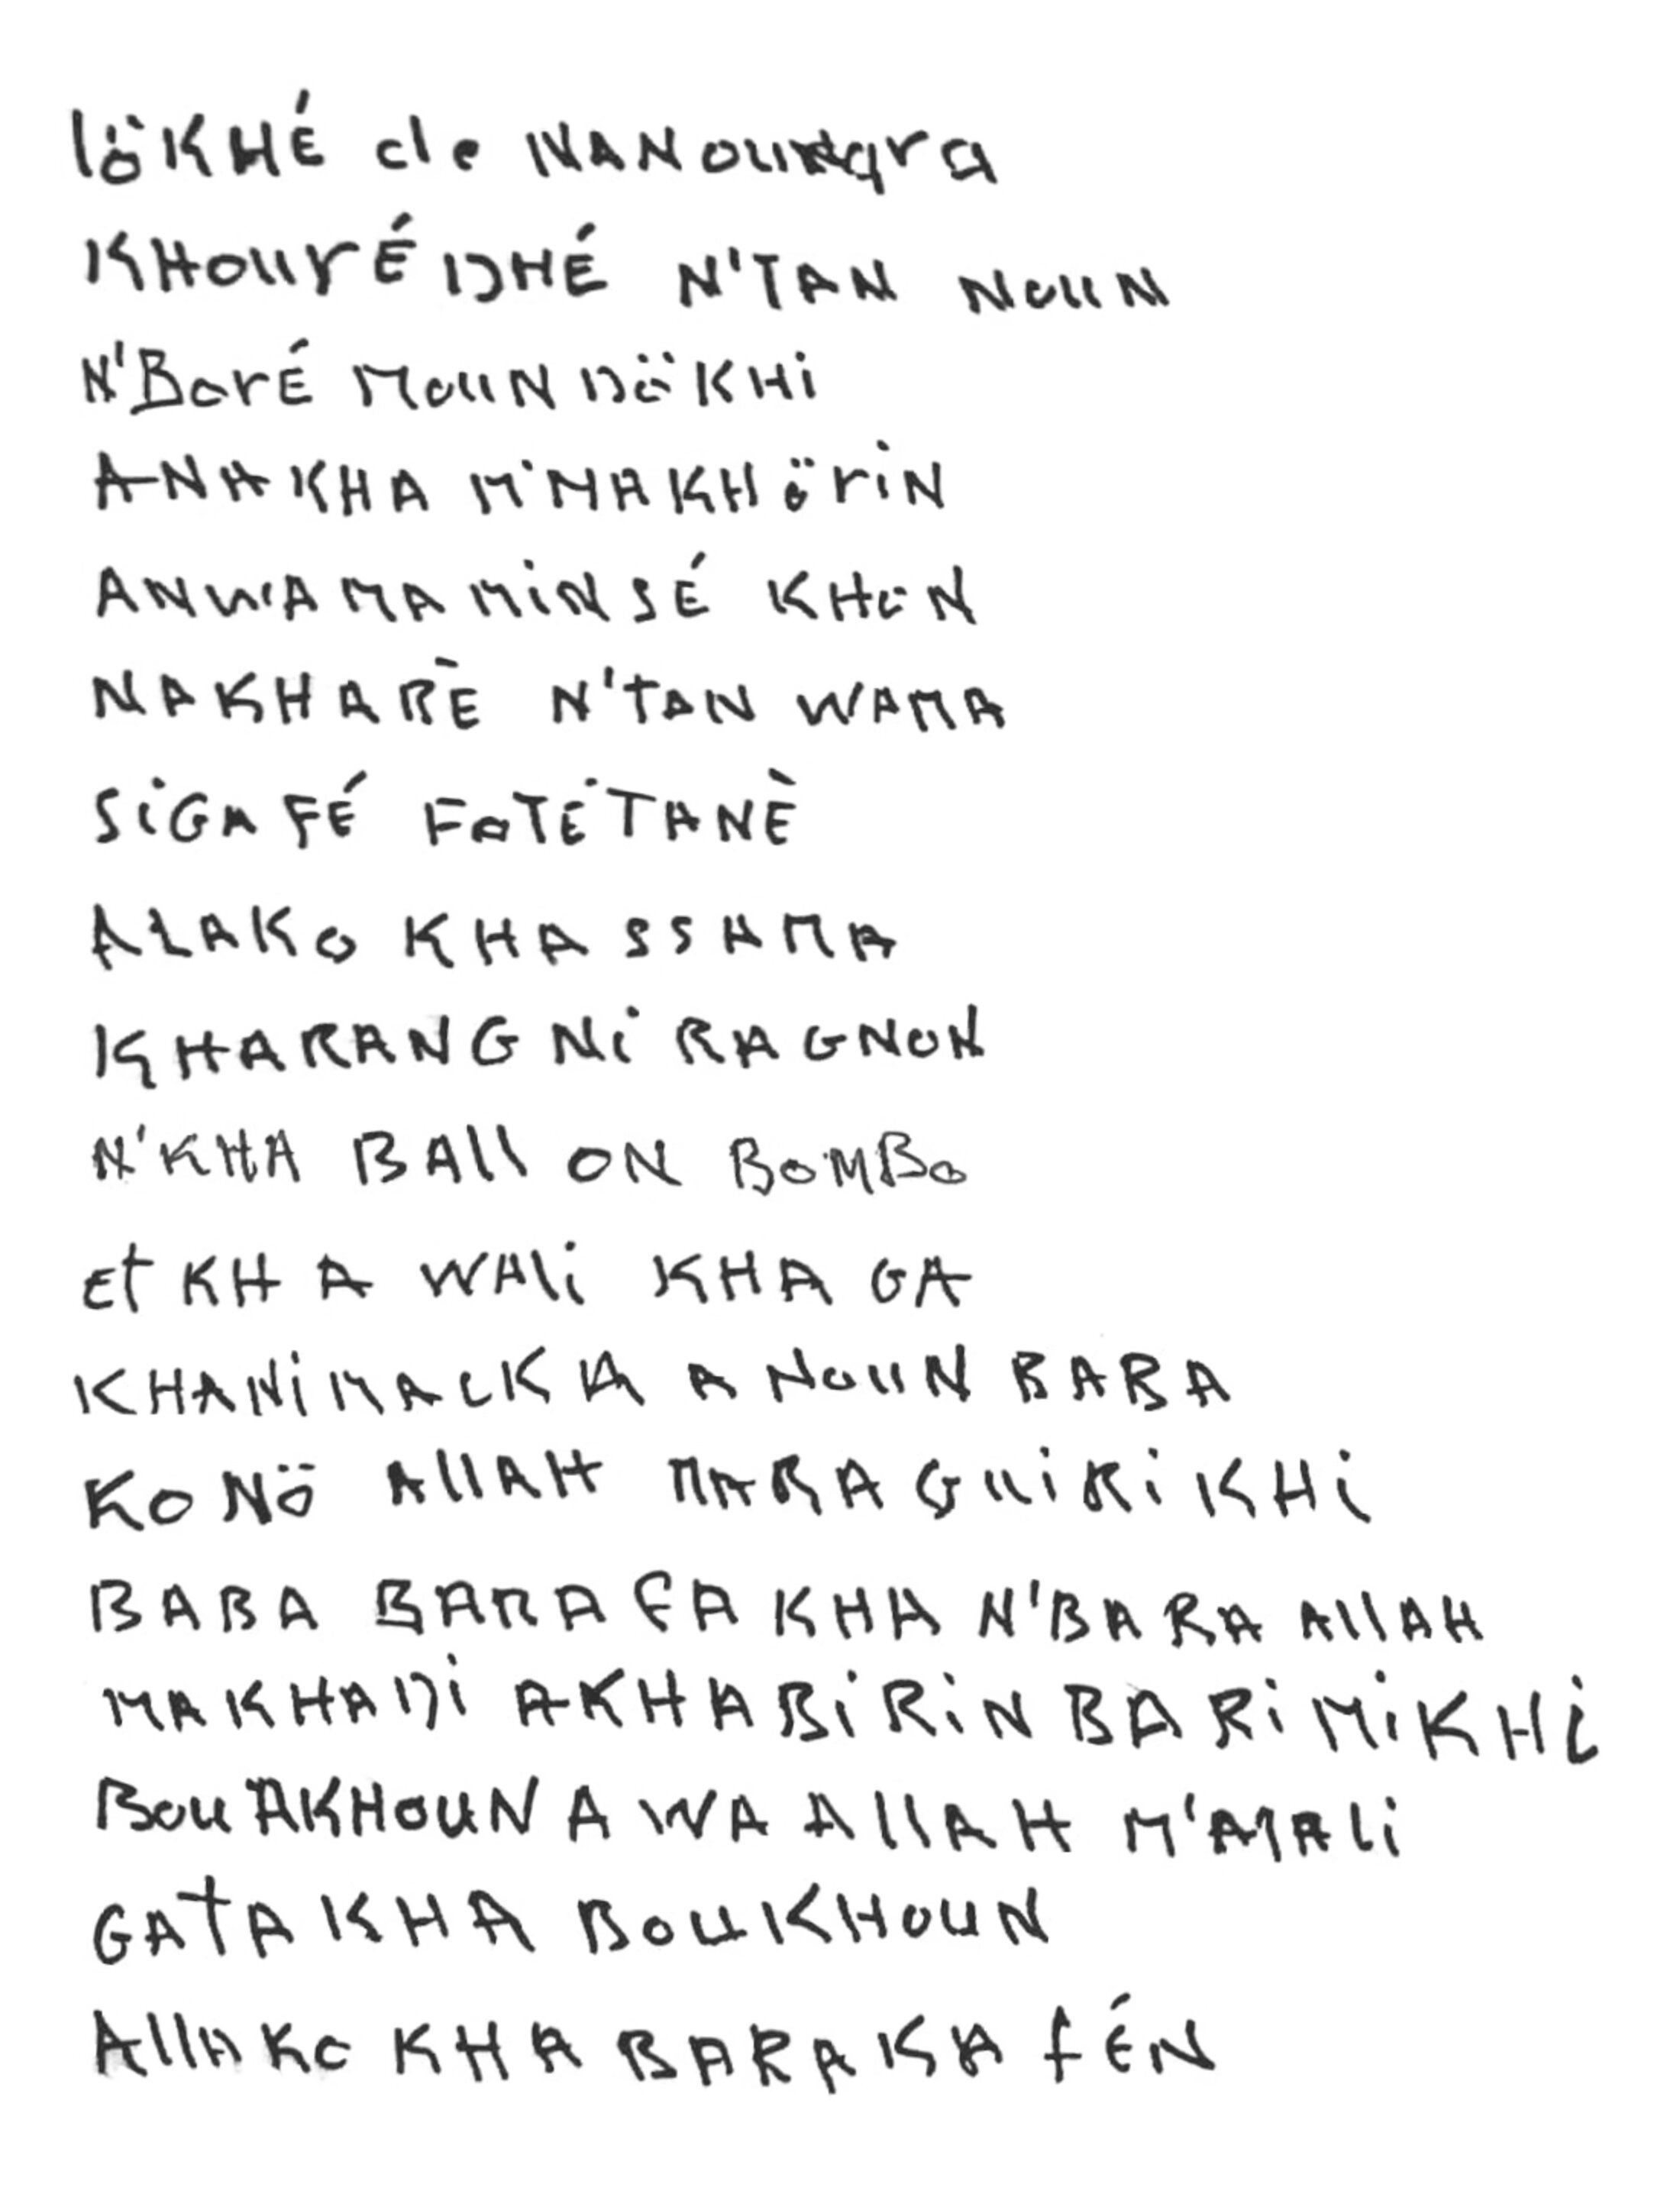 lökHÉ de NANOUNgra
KHOUrÉ DHÉ N'TAN NOUN
N'BorÉ MOUN DöKHi
ANAKHA M'MAKHöriN
ANWAMAMiNSÉ KHON
NAKHARÈ N'TAN WAMA
SiGA FÉ FOTÉTANÈ
ALAKO KHASSAMA
KHARANG Ni RAGNON
N'KHA BAll ON BOMBO
Et KHA WAli KHA GA
KHANiMALCKA A NOUN BABA
KONÖ AllAH MARAGUiRiKHi
BABA BARA FA KHA N'BARA AllAH
MAKHADi AKHABiRiN BARiMiKHi
BOU AKHOUN A WA AllAH M'AMALi
GATA KHA BOUKHOUN
AllAKO KHA BARAKA fÉN